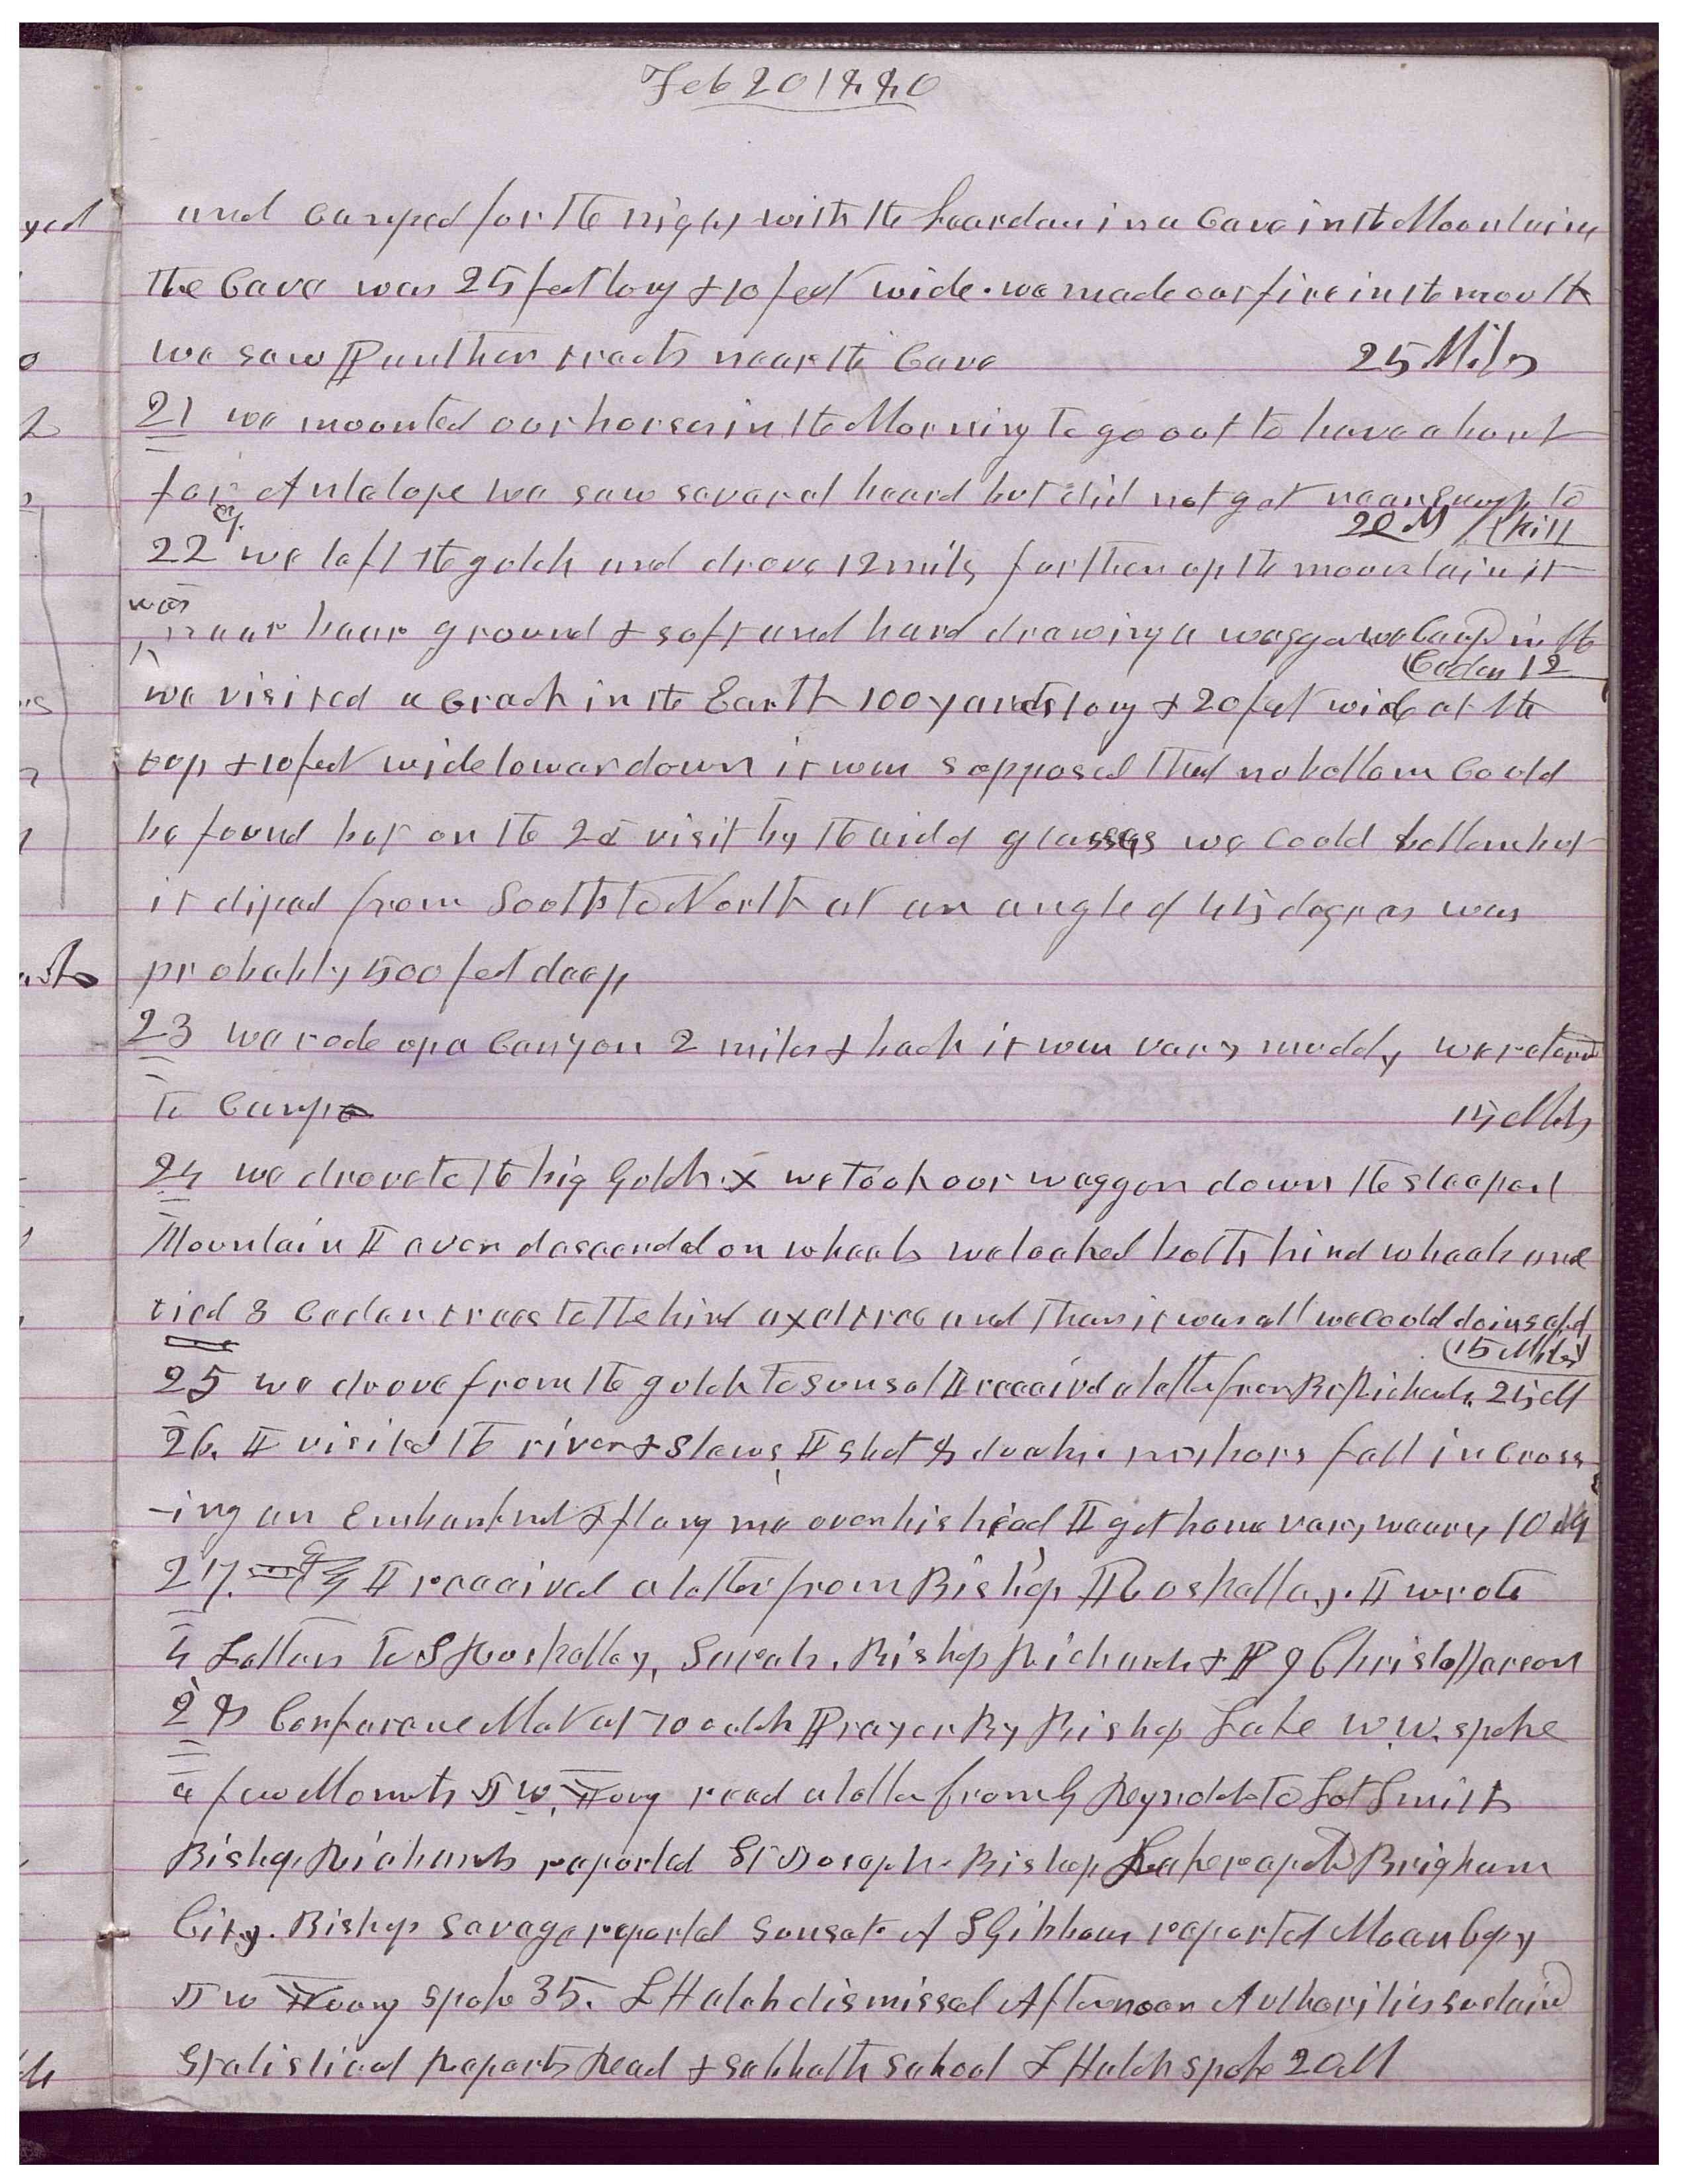 Feb 20 1880
and camped for the night with the heardsu in a Cave in the Mountain
The Cave was 25 feet long & 10 feet wide. we made our fire in the mouth
we saw Panther tracts near the Cave 25 Miles
21 we mounted our horses in the Morning to go out to have a hunt
for Antalope we saw several heard but did not get near enough to
kill 20 M
22 we left the gulch and drove 12 miles further up the mountain it
was near baar ground & soft and hard drawing a waggon we Camp in the
Cedars 12
we visited a Crack in the Earth 100 yards long & 20 feet wide at the
top & 10 feet wide lower down it was supposed that no bottom Could
be found but on the 2d visit by the aid of glasses we could bottom but
it diped from South to North at an angle of 45 degrees was
probably 500 feet deep
23 we rode up a Canyon 2 miles & back it was vary muddy we returnd
to Camp 15 Miles
24 we drove to the big Gulch & we took our waggon down the steepest
Mountain I ever desended on wheels we locked both hind wheels and
tied 3 Cedar trees to the hind axeltree and then it was all we could do in safd
15 Miles
25 we drove from the gulch to Sunset I received a letter from Br Richards 25 M
26. I visited the river & slews I shot 8 ducks. my hors fell in cross
-ing an Embankmt & flung me over his head I got home vary weary 10 M
27. I received a letter from Bishop Roskelley. I wrote
4 Letters to S Roskelley, Sarah, Bishop Richards & P G Christofferson
28 Conferance Met at 10 oclok Prayer By Bishop Lake W. W. spoke
a few Moments J W. Young read a letter from G Reynolds to Lot Smith
Bishop Richards reported St Joseph. Bishop Lake reportd Brigham
City. Bishop Savage reported Sunset. A S Gibbons reported Moan Copy
J W Young spoke 35. L Hatch dismissed Afternoon Authorities sustaind
Statistical Reports Read & sabbath school L Hatch spoke 20 M